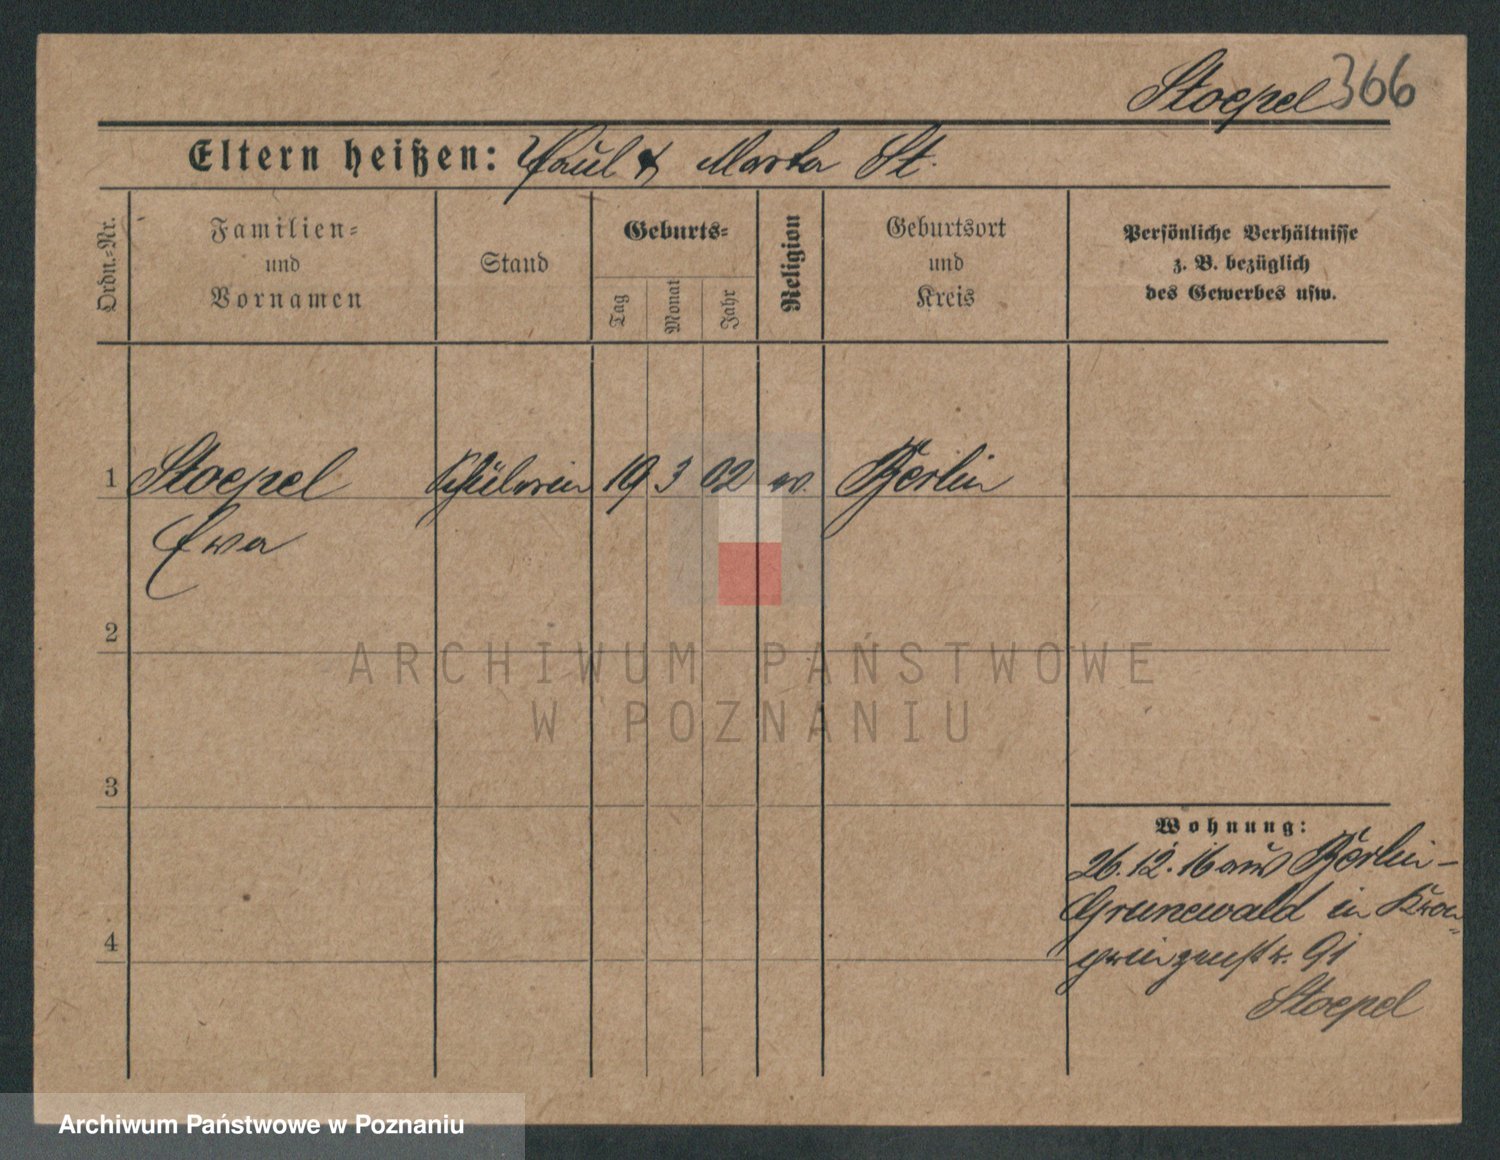 Stoepel 366
Eltern heißen: Paul & Marta St.
Ordn.-Nr.
Familien-
und
Vornamen
Stand
Geburts-
Tag
Monat
Jahr
Religion
Geburtsort
und
Kreis
Persönliche Verhältnisse
z. B. bezüglich
des Gewerbes usw.
1 Stoepel Schülerin 19 3 02 ev. Berlin
Eva
2
3
4
Wohnung:
26.12.16 aus Berlin-
Grunewald in Kron-
prinzenstr. 91
Stoepel
ARCHIWUM PAŃSTWOWE
W POZNANIU
Archiwum Państwowe w Poznaniu